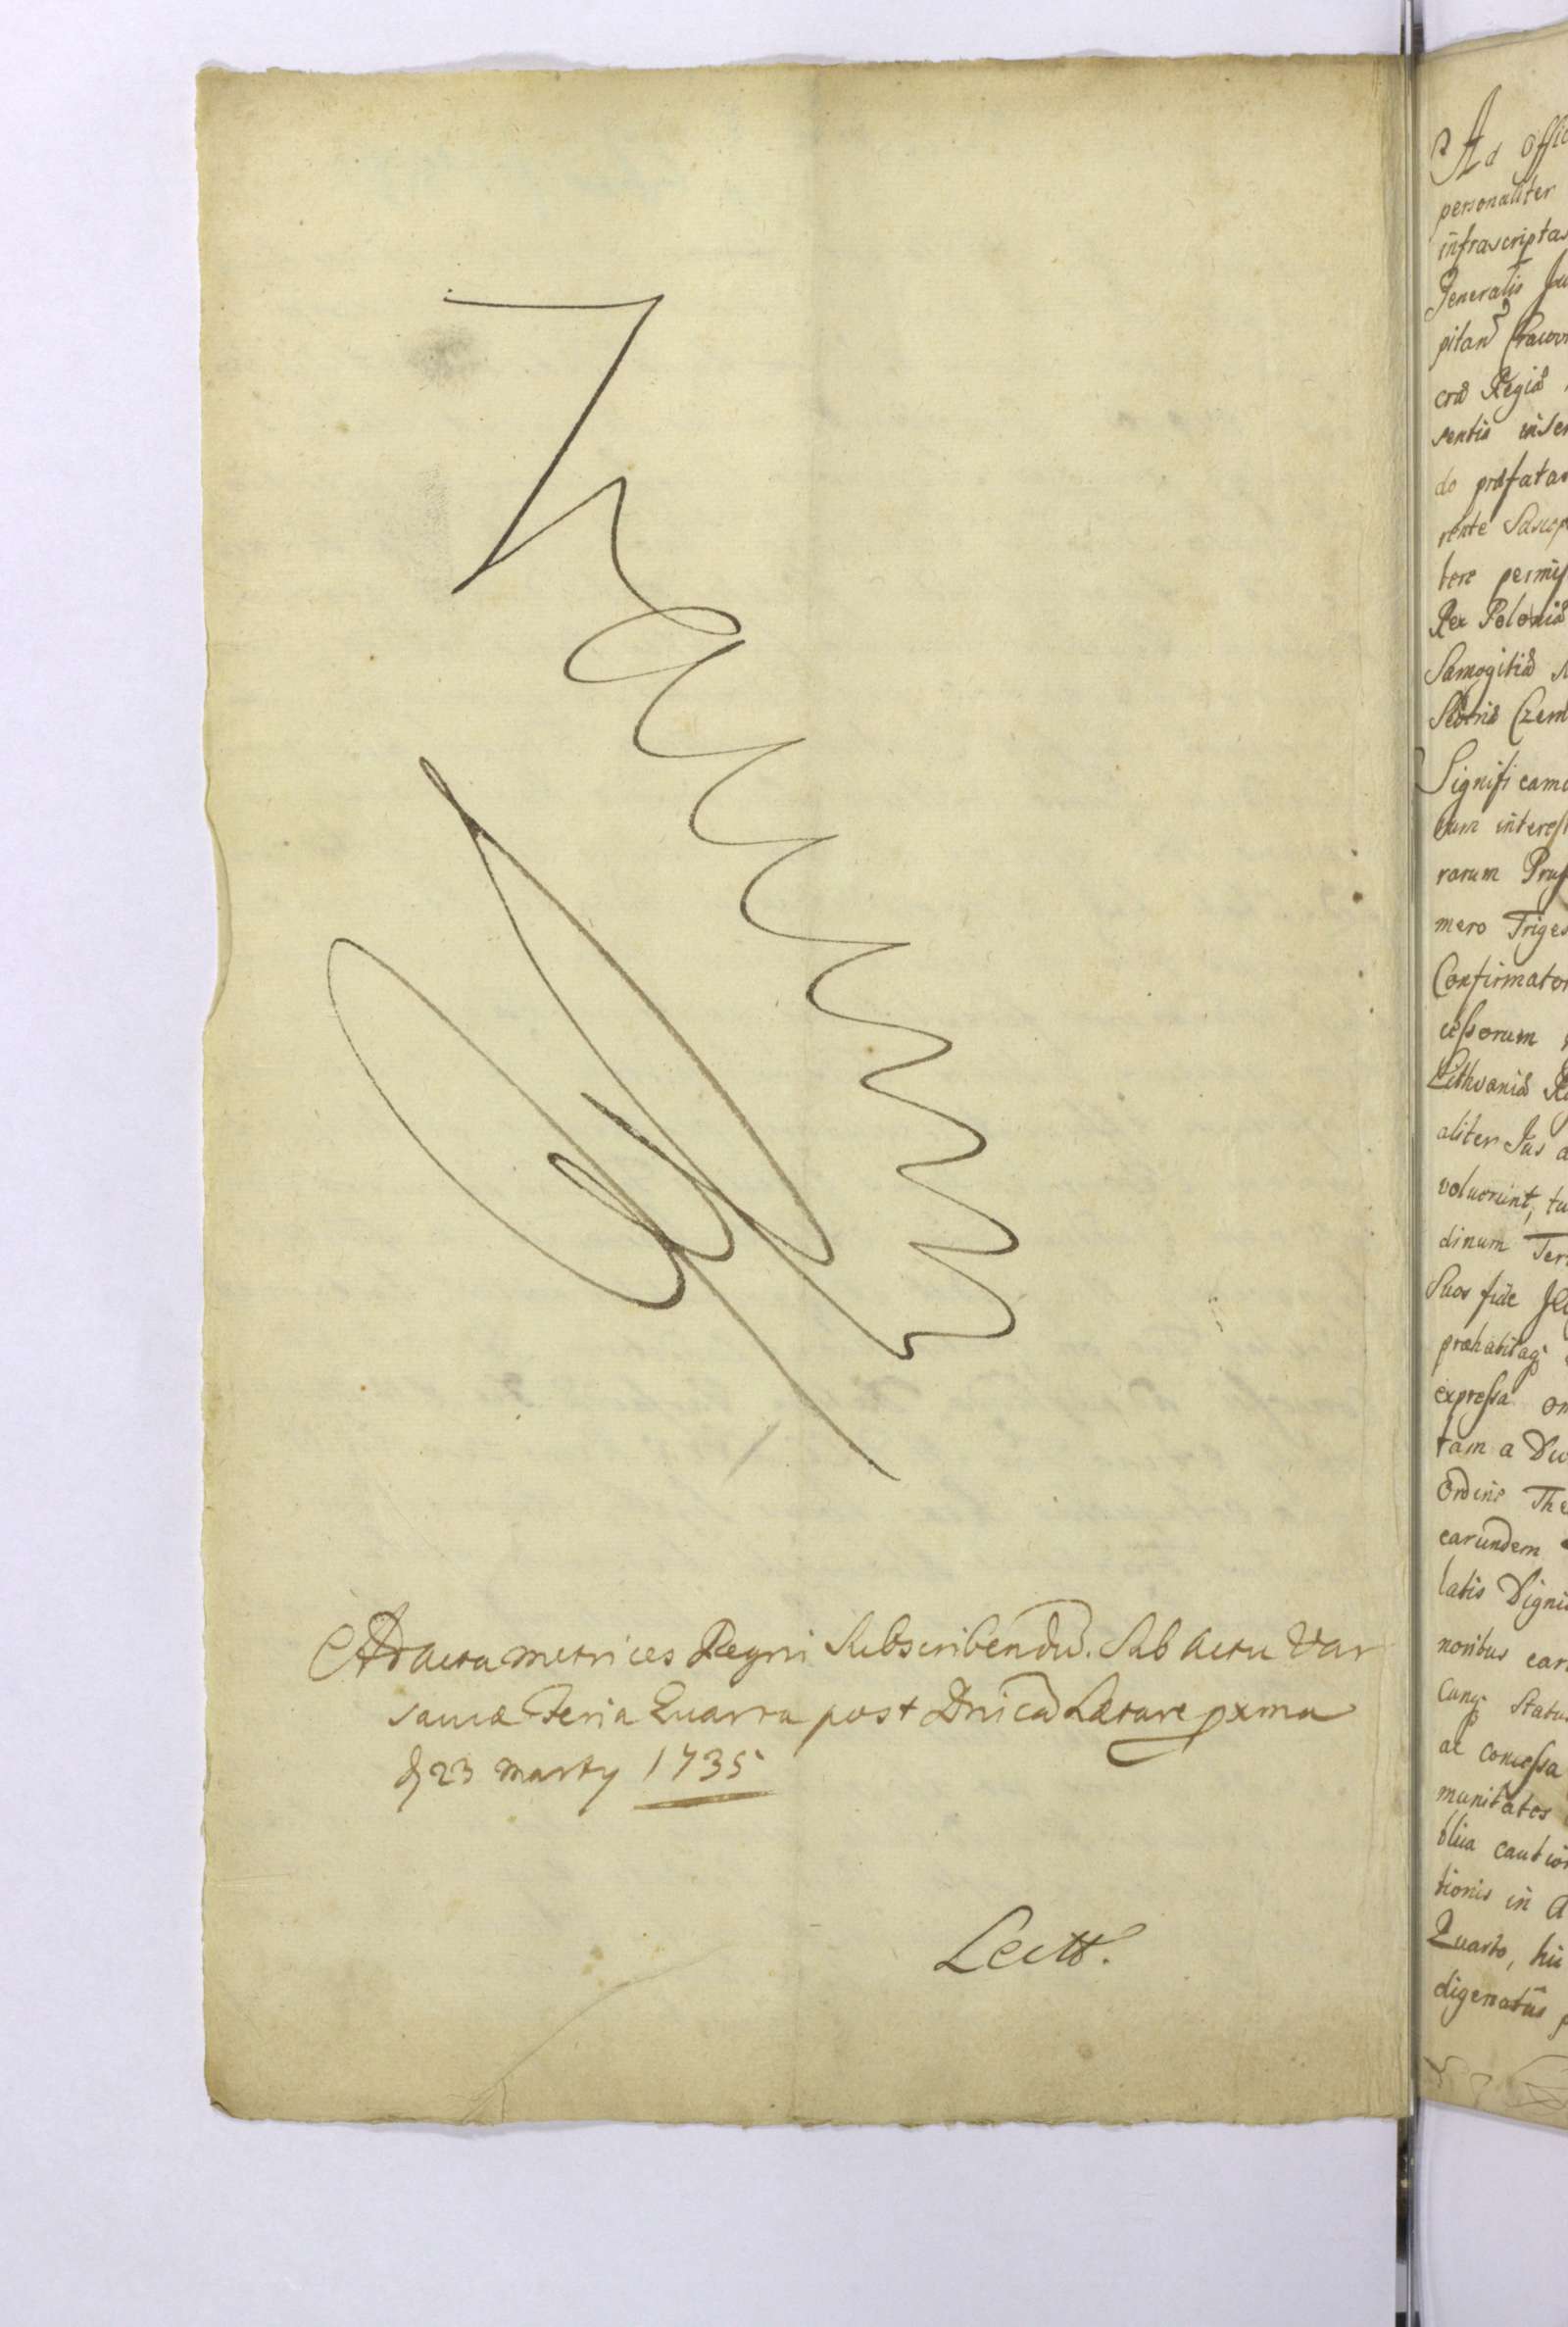 Ad acta metrices Regni Subscribendū. Sub actu Var
saviæ Feria Quarta post Dnicā Lætare pxma
d 23 marty 1735
Lectt.
Ad Offic
personaliter
infrascriptas
Generalis
pitan Cracov
cræ Regiæ
sentis inser
do præfatas
rente Suscep
bere permis
Rex Poloniæ
Samogitiæ
Czern
Significam
rum interess
rarum Prus
mero Triges
Confirmator
cessorum
Lithvaniæ
aliter Jus a
voluerint, tu
dinum Ter
Suos fide
præhabitaq
expressa om
tam a
Ordine The
earundem
latis Digni
noribus ear
cunq Statu
ac concessa
munitates
blica caution
tionis in
Quarto, hu
digenatus